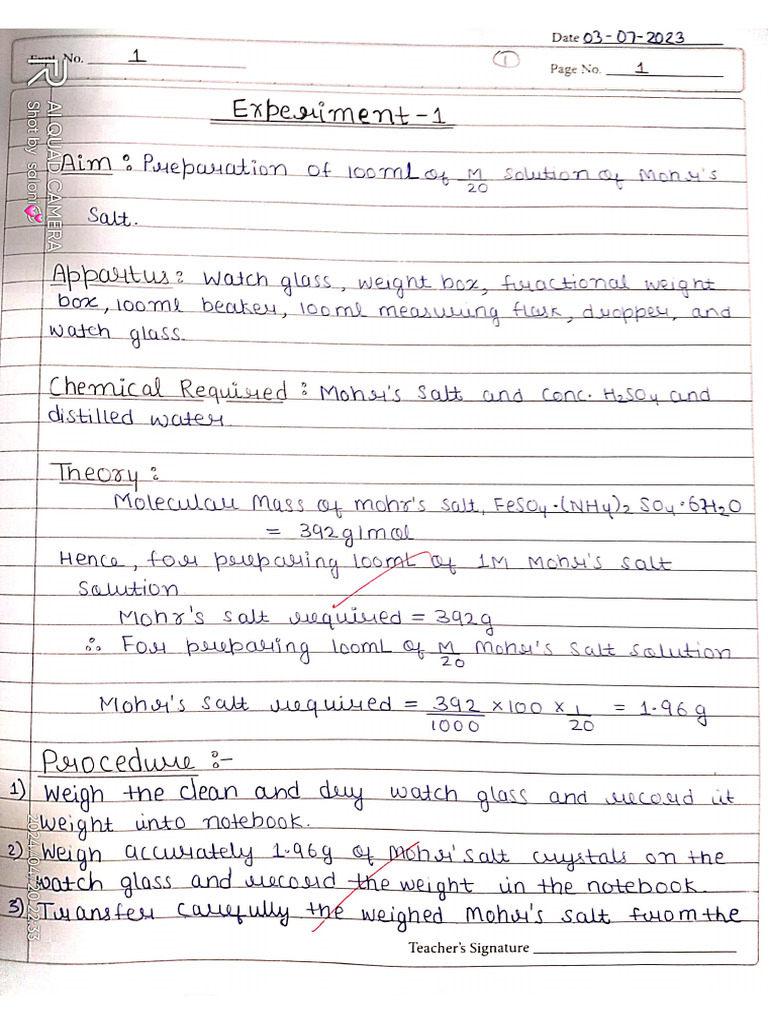 Date 03-07-2023
No. 1
1
Page No. 1
Experiment-1
Aim : Preparation of 100ml of M/20 solution of Mohr's
Salt.
Appartus : watch glass, weight box, fractional weight
box, 100ml beaker, 100ml measuring flask, dropper, and
watch glass.
Chemical Required : Mohr's Salt and conc. H2SO4 and
distilled water
Theory :
Molecular Mass of mohr's salt, FeSO4.(NH4)2 SO4.6H2O
= 392g/mol
Hence, for preparing 100mL of 1M Mohr's salt
solution
Mohr's salt required = 392g
∴ For preparing 100mL of M/20 Mohr's salt solution
Mohr's salt required = 392/1000 × 100 × 1/20 = 1.96 g
Procedure :-
1) Weigh the clean and dry watch glass and record it
weight into notebook.
2) Weigh accurately 1.96g of Mohr's salt crystals on the
watch glass and record the weight in the notebook.
3) Transfer carefully the weighed Mohr's salt from the
Teacher's Signature
AI QUAD CAMERA
Shot by saloni